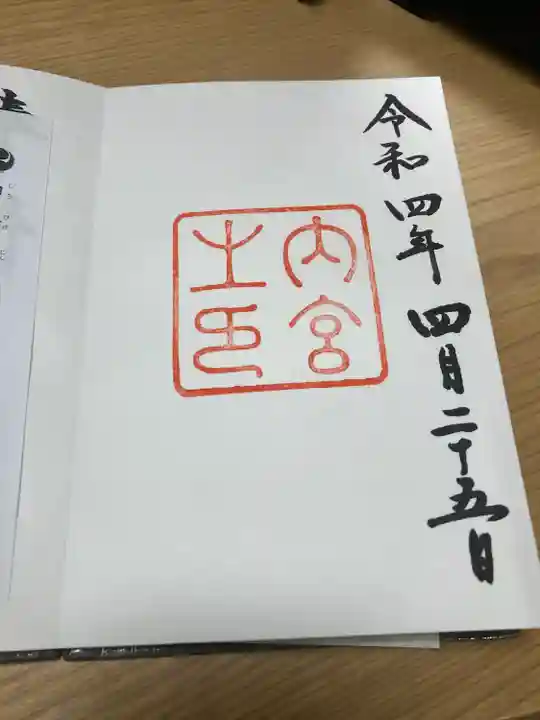 令和四年四月二十五日
内宮
之印